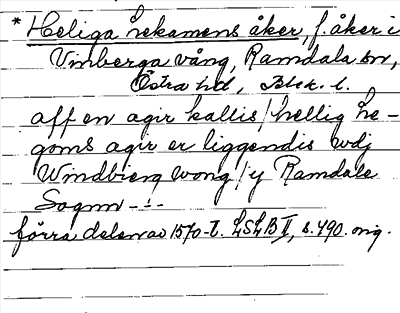 * Heliga lekamens åker, f. åker i
Vinberga vång, Ramdala sn,
Östra hd, Blek. l.
aff en agir kallis / hellig le-
goms agir er liggendis wdj
Windbierg wong / y Ramdale
Sognn -:-
förra delen av 1570-t. LSLB II, s. 490. orig.